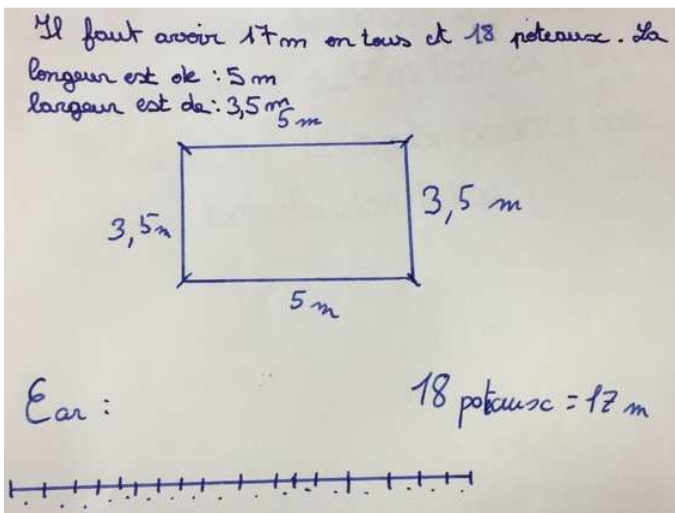 Il faut avoir 17 m en tous et 18 poteaux. La
longeur est de : 5 m
largeur est de : 3,5 m
5 m
3,5 m
3,5 m
5 m
Car :
18 poteaux = 17 m